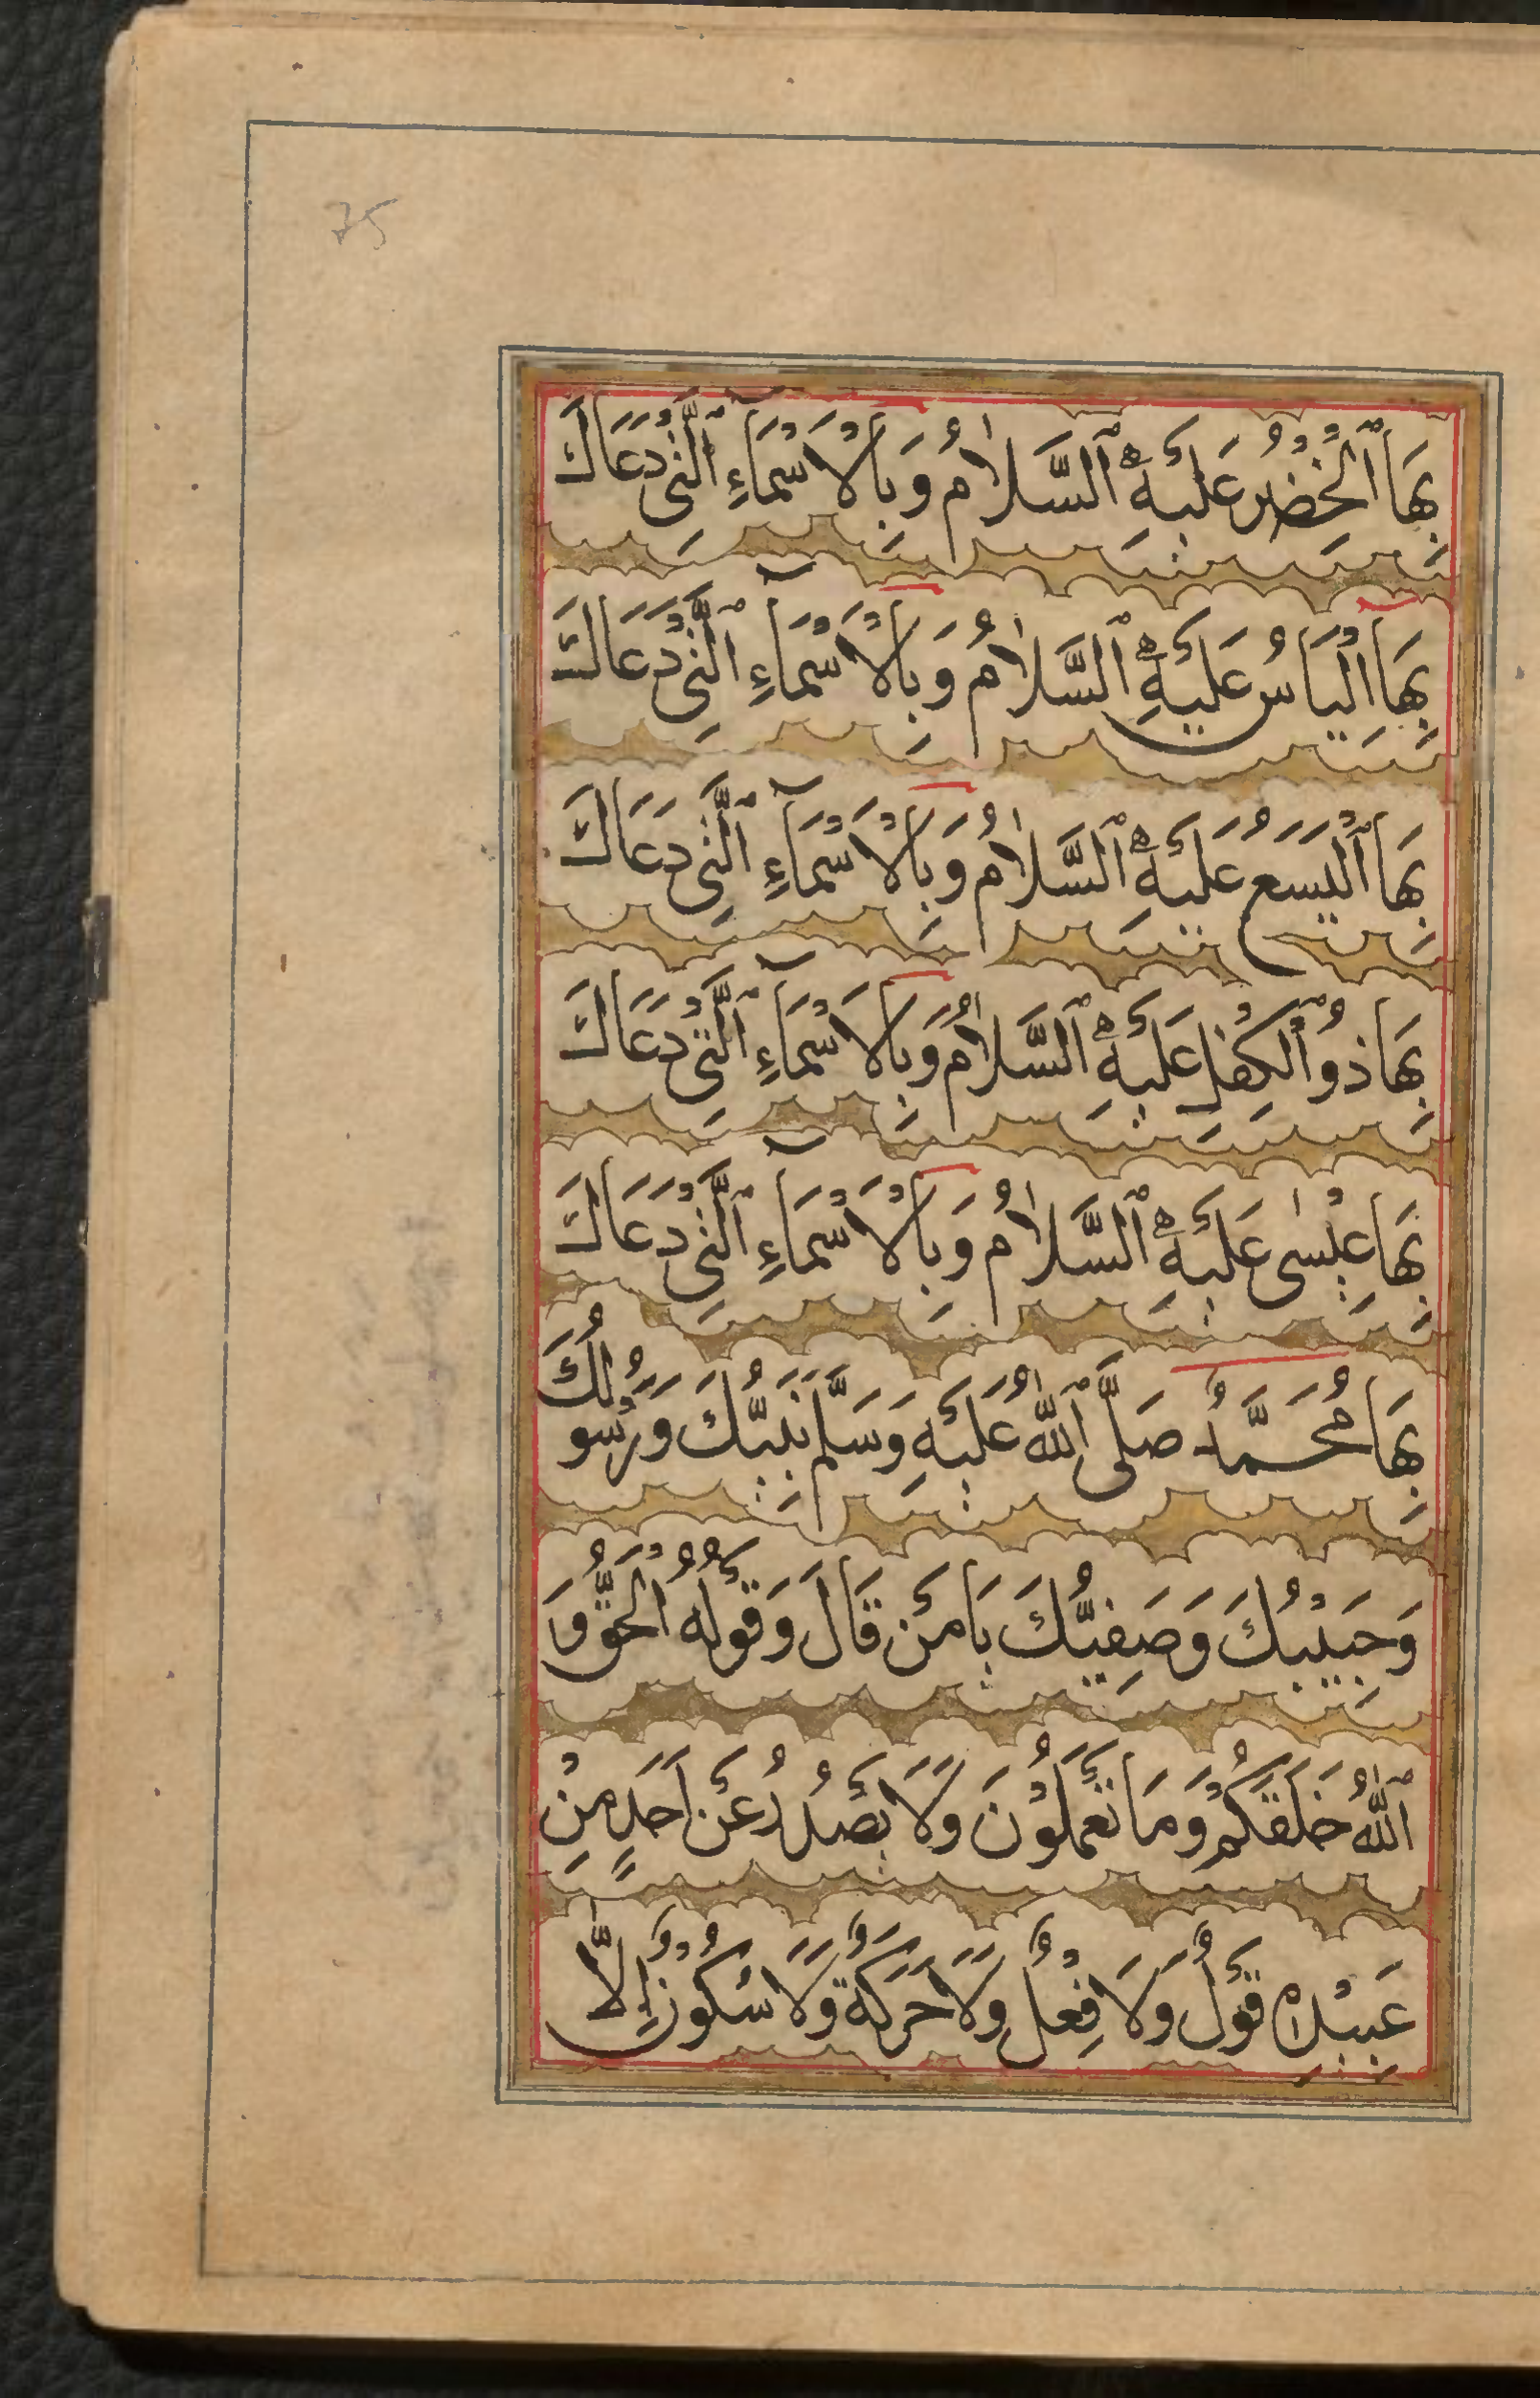 75
بِهَا ٱلْخَضِرُ عَلَيْهِ ٱلسَّلَامُ وَبِالْاَسْمَآءِ ٱلَّتِى دَعَاكَ
بِهَا اِلْيَاسُ عَلَيْهِ ٱلسَّلَامُ وَبِالْاَسْمَآءِ ٱلَّتِى دَعَاكَ
بِهَا ٱلْيَسَعُ عَلَيْهِ ٱلسَّلَامُ وَبِالْاَسْمَآءِ ٱلَّتِى دَعَاكَ
بِهَا ذُو ٱلْكِفْلِ عَلَيْهِ ٱلسَّلَامُ وَبِالْاَسْمَآءِ ٱلَّتِى دَعَاكَ
بِهَا عِيْسٰى عَلَيْهِ ٱلسَّلَامُ وَبِالْاَسْمَآءِ ٱلَّتِى دَعَاكَ
بِهَا مُحَمَّدٌ صَلَّى ٱللّٰهُ عَلَيْهِ وَسَلَّمَ نَبِيُّكَ وَرَسُولُكَ
وَحَبِيْبُكَ وَصَفِيُّكَ يَا مَنْ قَالَ وَقَوْلُهُ الْحَقُّ وَ
ٱللّٰهُ خَلَقَكُمْ وَمَا تَعْمَلُوْنَ وَلَا يَصْدُرُ عَنْ اَحَدٍ مِنْ
عَبِيْدِهٖ قَوْلٌ وَلَا فِعْلٌ وَلَا حَرَكَةٌ وَلَا سُكُوْنٌ اِلَّا